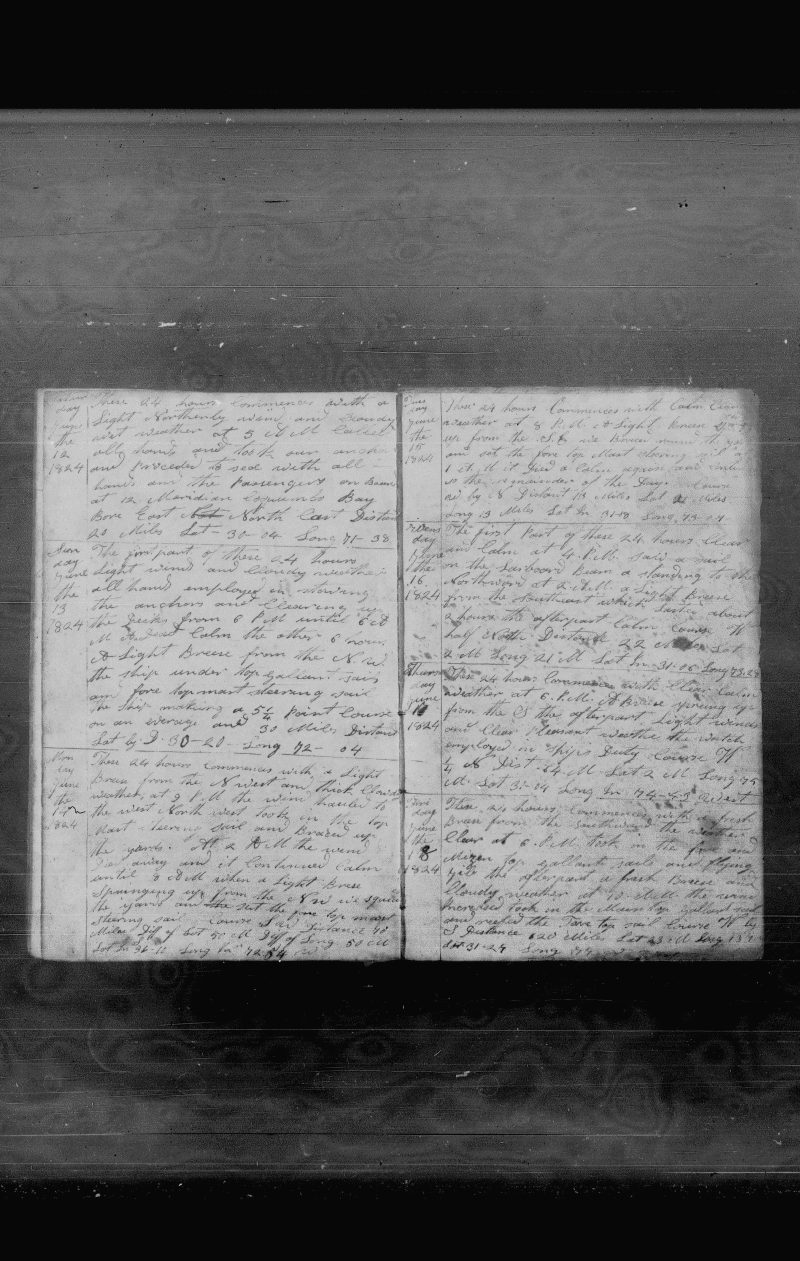 These 24 hours Commences with a
Light Northerly wind and Cloudy
wet weather at 5 A M Called
all hands and took our anchor
and proceded to sea with all
hands and the Passengers on Board
at 12 Meridian Coquimbo Bay
Bore East North East Distant
20 Miles Lat - 30-04 Long 71-38
day
June
the
12
1824
The first part of these 24 hours
Light wind and Cloudy weather
all hand employed in stowing
the anchors and Clearing up
the Decks from 6 P M until 6 A
M A Dead Calm the other 6 hours
A Light Breeze from the N W
the ship under top gallant sails
and fore top mast steering sail
the ship making a 5 1/4 Point Course
on an everage and 30 Miles Distant
Lat by D. 30-20- Long 72- 04
Sun
day
June
the
13
1824
These 24 hours commences with a Light
Breeze from the N west and thick Cloudy
weather, at 9 P M the wind hauled to
the west North west took in the top
mast steering sail and Braced up
the yards. At 2 A M the wind
Died away and it Continued Calm
until 8 A M when a Light Brese
Spranging up from the N W we squared
the yards and Set the fore top mast
steering sail. Course S W Distance 70
Miles Diff of Lat 50 M Diff of Long 50 M
Lat In 31-10 Long In 72-54 W
Mon
day
June
the
1824
These 24 hours Commences with Calm Clear
weather at 8 P.M A Light Breeze
up from the S.E we Brased round the yards
and set the fore top Mast steering sail at
1 A M it Died a Calm again and
is the remainder of the Day. Course
Distant 13 Miles Lat 2 Miles
Long 13 Miles Lat In 31-8 Long 73-07
day
June
the
15
1824
The first Part of these 24 hours Clear
and Calm at 4 P.M. saw a sail
on the Larboard Beam a standing to the
Northward at 2 A.M a Light Breeze
from the Southeast which Lasted about
2 hours the afterpart Calm Course W
half North Distance 22 Miles Lat
2 M Long 21 M Lat In 31-06 Long 73-28
day
June
the
16
1824
These 24 hours Commences with Clear Calm
weather at 6 P.M. A Breeze spreing up
from the S the afterpart Light winds
and Clear Pleasant weathe the watch
employed in ships Duty Course W
by N Dist 64 M Lat 2 M Long 75
M. Lat 31-04 Long In 74-43 West
Thurs
day
June
1824
These 24 hours Commences with a fresh
Breas from the Southward the weather
Clear at 6 P.M took in the fore and
Mizen top gallant sails and flying
Gib the afterpart a fresh Breeze and
Cloudy weather at 10 A M the wind
Increased took in the Main top gallant sail
and reefed the Fore top sail Course W by
S Distance 120 Miles Lat 23 M Long 137
Lat 31-27 Long
day
June
the
18
1824